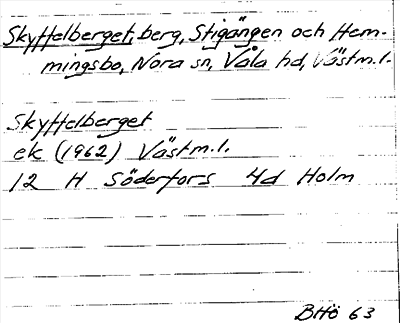 Skyttelberget, berg, Stigången och Hem-
mingsbo, Nora sn, Våla hd, Västm.l.
Skyttelberget
ek (1962) Västm.l.
12 H Söderfors 4d Holm
BHö 63